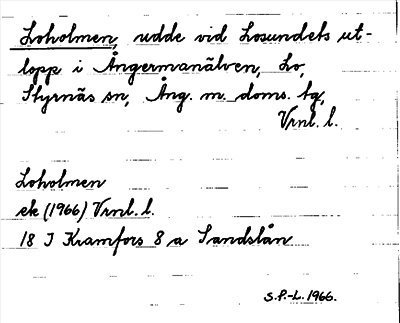 Loholmen, udde vid Losundets ut-
lopp i Ångermanälven, Lo,
Styrnäs sn, Ång. m. doms. tg,
Vrnl. l.
Loholmen
ek (1966) Vrnl. l.
18 J Kramfors 8 a Sandslån
S.P.-L. 1966.